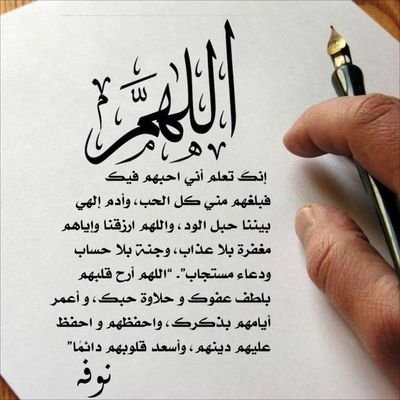 اللهمَّ
إنك تعلم أني احبهم فيك
فبلغهم مني كل الحب، وأدم إلهي
بيننا حبل الود، واللهم ارزقنا وإياهم
مغفرة بلا عذاب، وجنة بلا حساب
ودعاء مستجاب”۔ “اللهم أرح قلبهم
بلطف عفوك و حلاوة حبك، و أعمر
أيامهم بذكرك، واحفظهم و احفظ
عليهم دينهم، وأسعد قلوبهم دائمًا”
نوفه